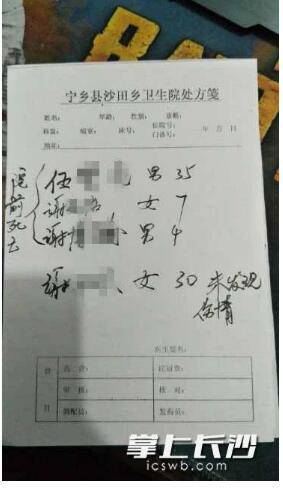 宁乡县沙田乡卫生院处方笺
姓名: 年龄: 性别: 诊断:
科室: 病室: 床号: 住院号: 门诊号: 年 月 日
院前死亡
伍 男 35
谢 女 7
谢 男 4
谢 女 30 未发现
伤情
医生签名:
审核: 核对:
调配员: 发药员:
掌上长沙
icswb.com